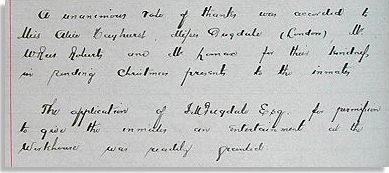 A unanimous vote of thanks was accorded to
Miss Alice Bayhurst, Misses Dugdale (London) Mr
Wm Rust Roberts and Mr Lomax for their kindness
in sending Christmas presents to the inmates
The application of Dugdale Esq. for permission
to give the inmates an entertainment at the
Workhouse was readily granted